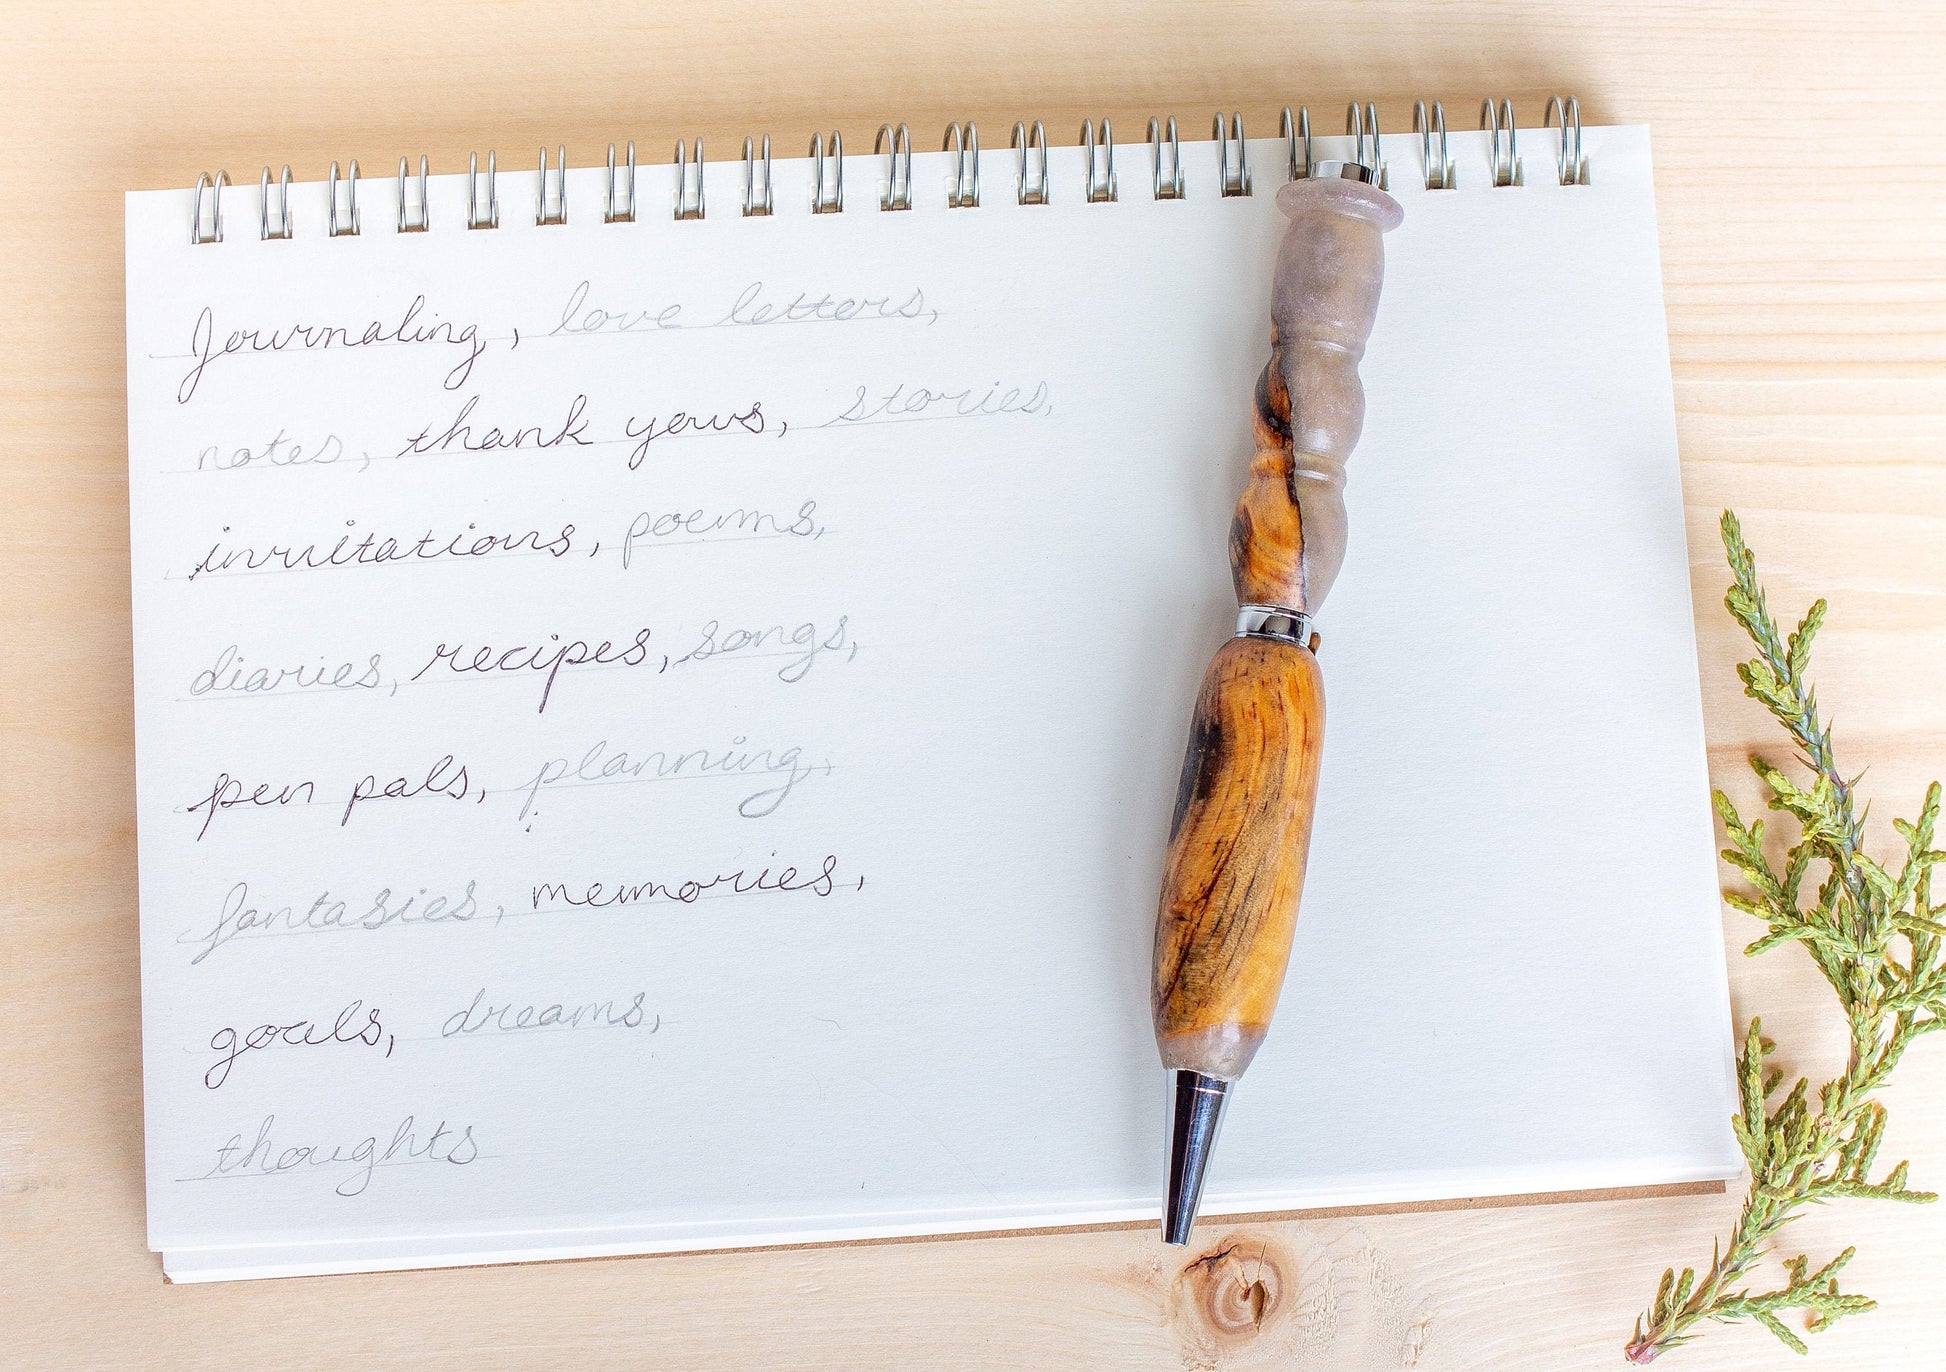 Journaling, love letters,
notes, thank yous, stories,
invitations, poems,
diaries, recipes, songs,
pen pals, planning,
fantasies, memories,
goals, dreams,
thoughts